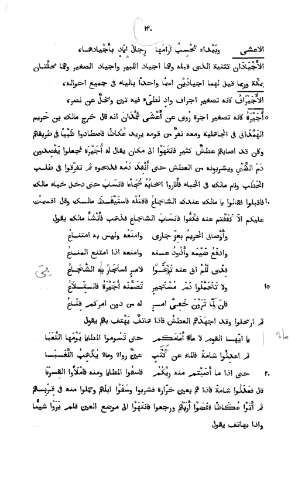 ١٣٠
الاعشى وبيداء تحسب آرامها رجال اياد باجيادها،
الأجيادان تثنية الذى قبله وهما اجياد الكبير واجياد الصغير وهما محلتان
بمكة وربما قيل لهما اجيادين اسما واحدا بالياء فى جميع احواله،
الأجيراف كانه تصغير اجراف واد لطىء فيه تين ونخل عن نصر،
أجيرة كانه تصغير اجرة روى عن أعشى همدان انه قال خرج مالك بن حريم
الهمدانى فى الجاهلية ومعه نفر من قومه يريد عكاظ فاصطادوا ظبيا فى طريقهم
وقد اصابهم عطش كثير فانتهوا الى مكان يقال له أجيرة فجعلوا يفصدون
دم الظبى ويشربونه من العطش حتى أنفد دمه فذبحوه ثم تفرقوا فى طلب
الحطب ونام مالك فى الخباء فاثاروا اصحابه شجاعا فانساب حتى دخل خباء مالك
فاقبلوا فقالوا يا مالك عندك الشجاع فاقتله فاستيقظ مالك وقال اقسمت
عليكم الا كففتم عنه فكفوا فانساب الشجاع فذهب فأنشأ مالك يقول
وأوصانى الحريم بعز جارى وامنعه وليس به امتناع
وادفع ضيمه واذود عنه وامنعه اذا امتنع المناع
فدى لكم ابى عنه تنحوا لامر ما استجار بى الشجاع
ولا تتحملوا دم مستجير تضمنه أجيرة فالتلاع
فان لما ترون خفى امر له من دون امركم قناع
ثم ارتحلوا وقد اجهدهم العطش فاذا هاتف يهتف بهم يقول
يا ايها القوم لا ماء امامكم حتى تسوموا المطايا يومها التعبا
ثم اعدلوا شامة فالماء عن كثب عين رواء وماء يذهب اللغبا
٢٠ حتى اذا ما أصبتم منه ريكم فاسقوا المطايا ومنه فاملأوا القربا
قال فعدلوا شامة فاذا هم بعين خرارة فشربوا وسقوا ابلهم وحملوا منه فى قربهم
ثم أتوا عكاظ فقضوا أربهم ورجعوا فانتهوا الى موضع العين فلم يروا شيئا
واذا بهاتف يقول